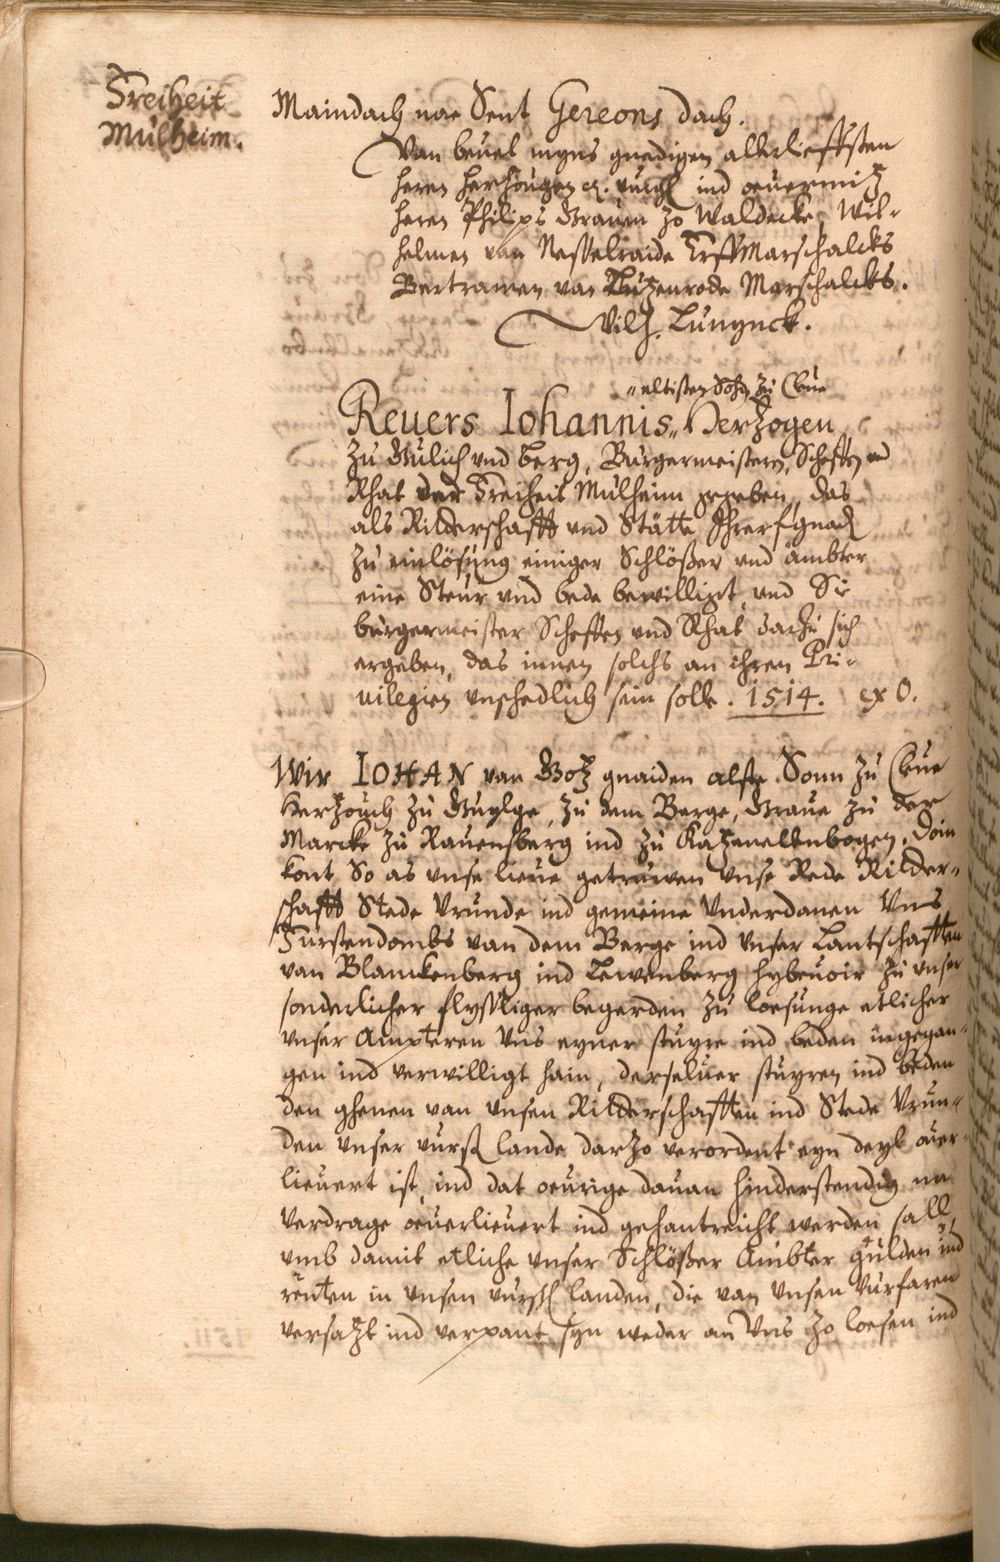 Freiheit
Mülheim.
Maindach nae Sent Gereons dach.
Van beuel myns gnedigen allerlieffsten
heren hertzougen etc. vurß ind ouermitz
heren Philips Grauen zo Waldecke, Wil-
helmen van Nesselraide ErffMarschalcks
Bertramen van Lutzenrode Marschalcks.
Wilh. Lunynck.
„ eltisten Sohn zu Cleue
Reuers Iohannis „ Hertzogen
zu Gulich vnd Berg, Burgermeistern, Scheffen vnd
Rhat der Freiheit Mulheim gegeben, das
als Ritterschafft vnd Stätte Ihrer f. gnad
zu einlösung einiger Schlößer vnd ämbter
eine Steur vnd bede bewilligt, vnd Sie
bürgermeister Scheffen vnd Rhat darzu sich
ergeben, das innen solchs an ihren Pri-
uilegien vnschedlich sein solle. 1514. ex O.
Wir IOHAN van Gotz gnaiden alste Sonn zu Cleue
Hertzouch zu Guylge, zu dem Berge, Graue zu der
Marcke zu Rauensberg ind zu Katzenellenbogen, Doin
kont So as vnse lieue getruwen vnse Rede Ritter-
schafft Stede Vrunde ind gemeine Vnderdanen Vns
Furstendombs van dem Berge ind vnser Lantschafften
van Blanckenberg ind Lewenberg hybeuoir zu vnser
sonderlicher flyssliger begerden zu loesunge etlicher
vnser Ampteren Vns eyner stuyre ind beden ingegan-
gen ind verwilligt hain, derseluer stuyren ind beden
den ghenen van vnsen Ritterschafften ind Stede Vrun-
den vnser vurß lande darzo verordent eyn deyl ouer-
lieuert ist, ind dat oeurige dauan hinderstendig na
Verdrage oeuerlieuert ind gehantreicht werden sall,
vmb damit etliche vnser Schlößer Ambter gülden ind
renten in vnsen vurß landen, die van vnsen Vurfaren
versatzt ind verpant syn weder an Vns zo loesen ind